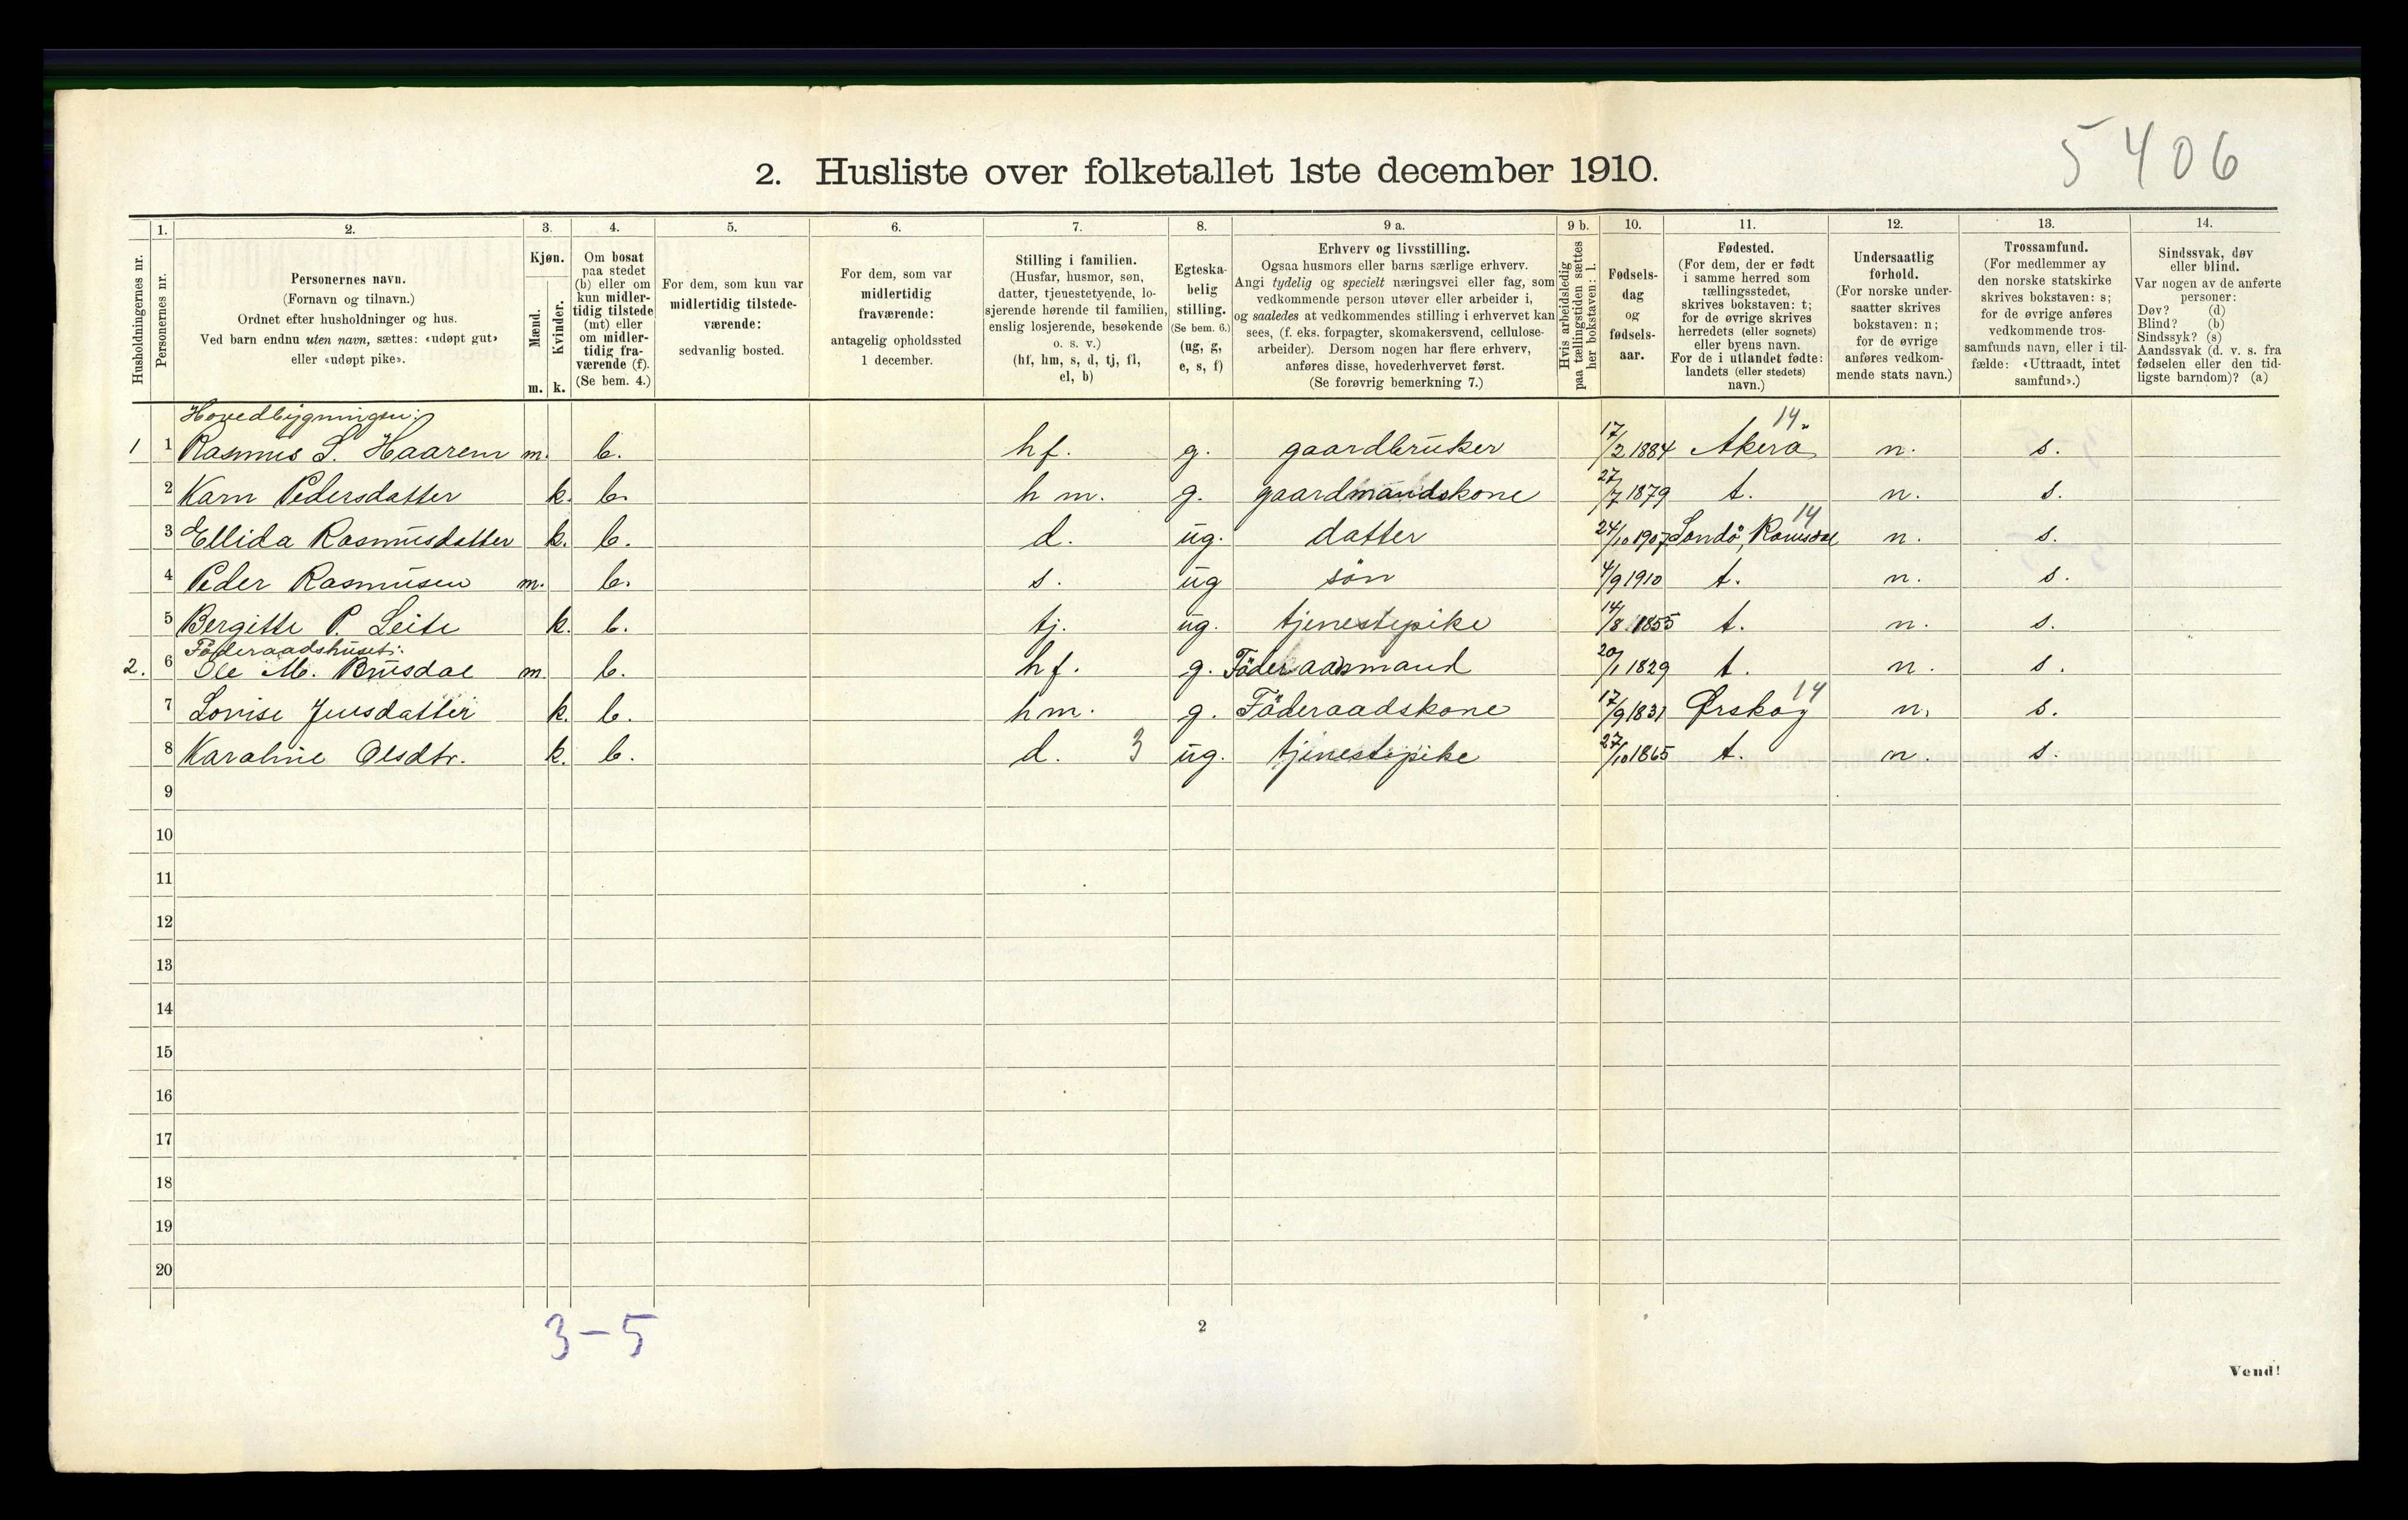 5406
2. Husliste over folketallet 1ste december 1910.
Husholdningernes nr.
1.
Personernes nr.
2.
Personernes navn.
(Fornavn og tilnavn.)
Ordnet efter husholdninger og hus.
Ved barn endnu uten navn, sættes: «udøpt gut»
eller «udøpt pike».
3.
Kjøn.
Mænd.
m.
Kvinder.
k.
4.
Om bosat
paa stedet
(b) eller om
kun midler-
tidig tilstede
(mt) eller
om midler-
tidig fra-
værende (f).
(Se bem. 4.)
5.
For dem, som kun var
midlertidig tilstede-
værende:
sedvanlig bosted.
6.
For dem, som var
midlertidig
fraværende:
antagelig opholdssted
1 december.
7.
Stilling i familien.
(Husfar, husmor, søn,
datter, tjenestetyende, lo-
sjerende hørende til familien,
enslig losjerende, besøkende
o. s. v.)
(hf, hm, s, d, tj, fl,
el, b)
8.
Egteska-
belig
stilling.
(Se bem. 6.)
(ug, g,
e, s, f)
9 a.
Erhverv og livsstilling.
Ogsaa husmors eller barns særlige erhverv.
Angi tydelig og specielt næringsvei eller fag, som
vedkommende person utøver eller arbeider i,
og saaledes at vedkommendes stilling i erhvervet kan
sees, (f. eks. forpagter, skomakersvend, cellulose-
arbeider). Dersom nogen har flere erhverv,
anføres disse, hovederhvervet først.
(Se forøvrig bemerkning 7.)
9 b.
Hvis arbeidsledig
paa tællingstiden sættes
her bokstaven: l.
10.
Fødsels-
dag
og
fødsels-
aar.
11.
Fødested.
(For dem, der er født
i samme herred som
tællingsstedet,
skrives bokstaven: t;
for de øvrige skrives
herredets (eller sognets)
eller byens navn.
For de i utlandet fødte:
landets (eller stedets)
navn.)
12.
Undersaatlig
forhold.
(For norske under-
saatter skrives
bokstaven: n;
for de øvrige
anføres vedkom-
mende stats navn.)
13.
Trossamfund.
(For medlemmer av
den norske statskirke
skrives bokstaven: s;
for de øvrige anføres
vedkommende tros-
samfunds navn, eller i til-
fælde: «Uttraadt, intet
samfund».)
14.
Sindssvak, døv
eller blind.
Var nogen av de anførte
personer:
Døv? (d)
Blind? (b)
Sindssyk? (s)
Aandssvak (d. v. s. fra
fødselen eller den tid-
ligste barndom)? (a)
Hovedbygningen: 14
1 1 Rasmus S. Haarem m. b. hf. g. gaardbruker 17/2 1884 Akerö n. s.
2 Karn Pedersdatter k. b. hm. g. gaardmandskone 27/7 1879 t. n. s.
14
3 Ellida Rasmusdatter k. b. d. ug. datter 24/10 1907 Sandö, Romsdal n. s.
4 Peder Rasmusen m. b. s. ug sön 4/9 1910 t. n. s.
5 Bergitte P. Leite k. b. tj. ug. tjenestepike 14/8 1855 t. n. s.
Föderaadshuset:
2. 6 Ole M. Brusdal m. b. hf. g. Föderaadsmand 20/1 1829 t. n. s.
14
7 Lovise Jensdatter k. b. hm. g. Föderaadskone 17/9 1831 Ørskog n. s.
8 Karoline Olsdtr. k. b. d. 3 ug. tjenestepike 27/10 1865 t. n. s.
9
10
11
12
13
14
15
16
17
18
19
20
3-5
2
Vend!